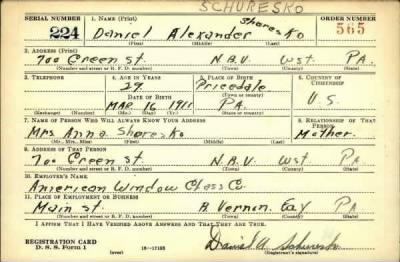 SCHURESKO
SERIAL NUMBER 1. NAME (Print) ORDER NUMBER
224 Daniel Alexander Shoresko 565
(First) (Middle) (Last)
2. ADDRESS (Print)
700 Green St. N.B.V. Wst. PA.
(Number and street or R. F. D. number) (Town) (County) (State)
3. TELEPHONE 4. AGE IN YEARS 5. PLACE OF BIRTH 6. COUNTRY OF CITIZENSHIP
29 Pricedale
DATE OF BIRTH (Town or county)
MAR. 16 1911 PA. U.S.
(Exchange) (Number) (Mo.) (Day) (Yr.) (State or country)
7. NAME OF PERSON WHO WILL ALWAYS KNOW YOUR ADDRESS 8. RELATIONSHIP OF THAT PERSON
Mrs Anna Shoresko Mother.
(Mr., Mrs., Miss) (First) (Middle) (Last)
9. ADDRESS OF THAT PERSON
700 Green St. N.B.V. Wst. PA
(Number and street or R. F. D. number) (Town) (County) (State)
10. EMPLOYER'S NAME
American Window Glass Co.
11. PLACE OF EMPLOYMENT OR BUSINESS
Main St. B. Vernon. Fay PA.
(Number and street or R. F. D. number) (Town) (County) (State)
I AFFIRM THAT I HAVE VERIFIED ABOVE ANSWERS AND THAT THEY ARE TRUE.
REGISTRATION CARD
D. S. S. Form 1 (over) 16—17105 Daniel A Schuresko
(Registrant's signature)